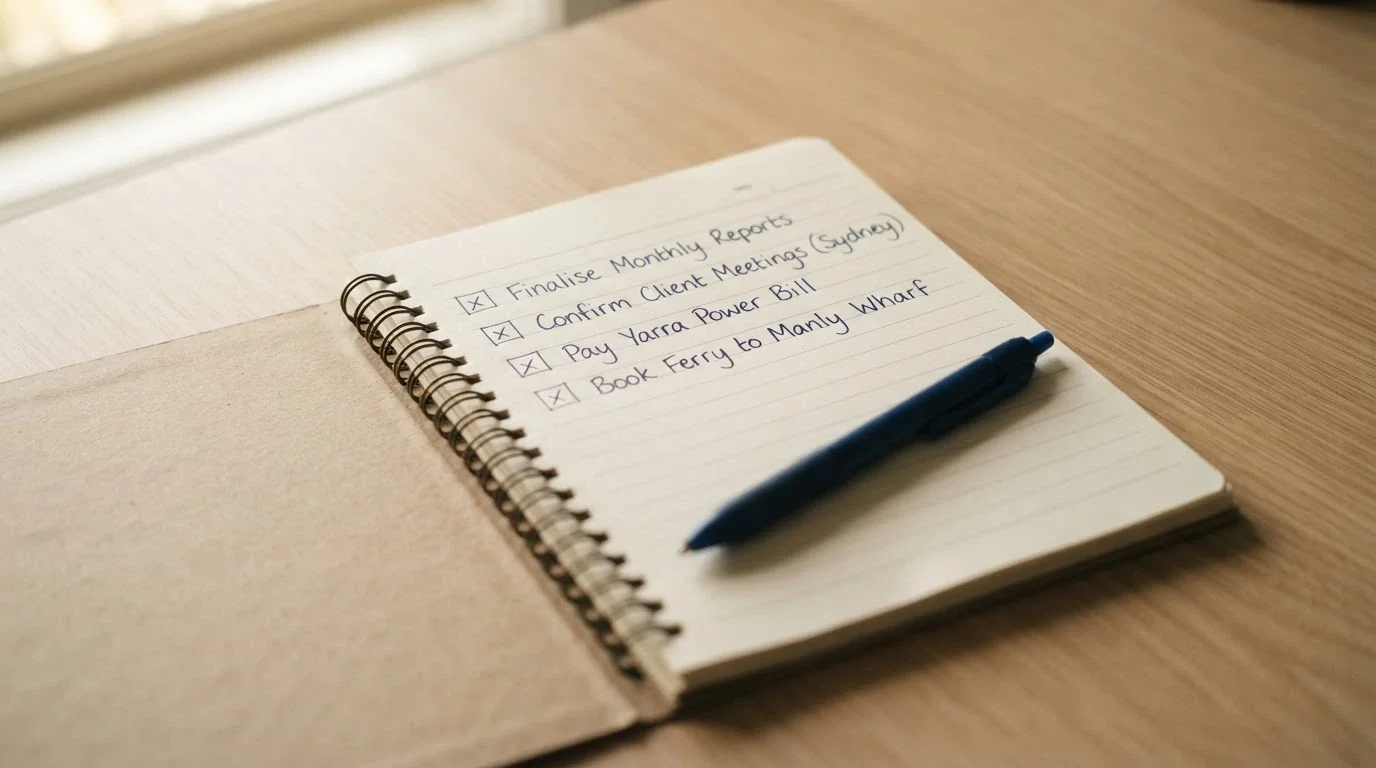 ☒ Finalise Monthly Reports
☒ Confirm Client Meetings (Sydney)
☒ Pay Yarra Power Bill
☒ Book Ferry to Manly Wharf